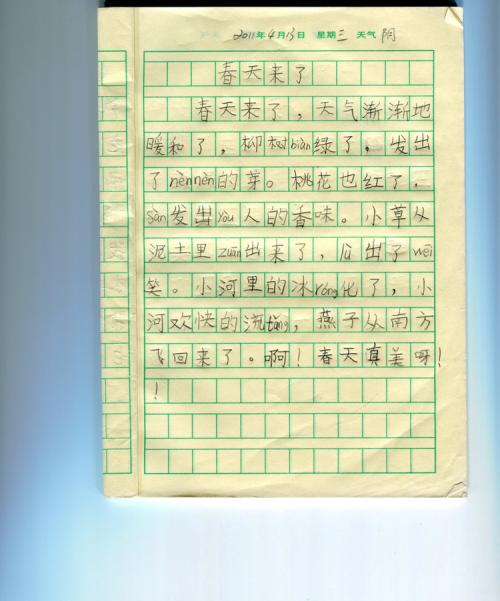 2011年4月13日 星期三 天气 阴
春天来了
春天来了，天气渐渐地
暖和了，柳树biàn绿了，发出
了nènnèn的芽。桃花也红了，
sàn发出yòu人的香味。小草从
泥土里zuān出来了，出了wēi
笑。小河里的冰róng化了，小
河欢快的流tǎng，燕子从南方
飞回来了。啊！春天真美呀！
！